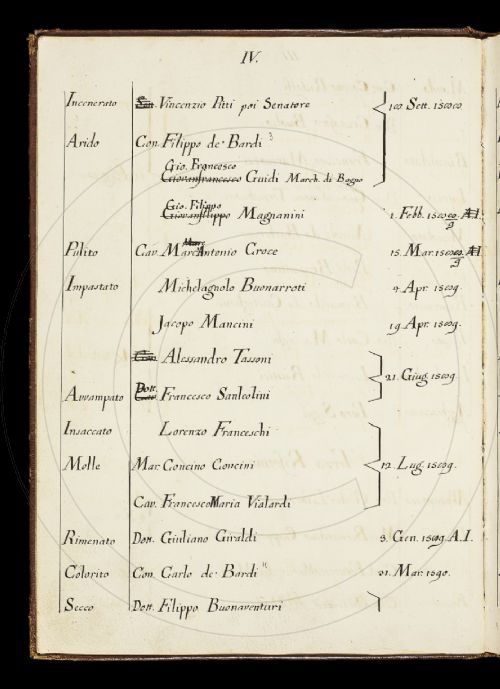 IV.
Incenerato Sen. Vincenzio Pitti poi Senatore
Arido Con. Filippo de' Bardi 3
Gio. Francesco
Giovanfrancesco Guidi March. di Bagno
Gio. Filippo
Giovanfilippo Magnanini 1. Febb.
Pulito Cav. Marc Antonio Croce 15. Mar.
Impastato Michelagnolo Buonarroti 9. Apr. 1589.
Jacopo Mancini 19. Apr. 1589.
Alessandro Tassoni
21. Giug. 1589.
Dott.
Avvampato Francesco Sanleolini
Insaccato Lorenzo Franceschi
Molle Mar. Concino Concini 12. Lug. 1589.
Cav. Francesco Maria Vialardi
Rimenato Dott. Giuliano Giraldi 3. Gen. 1589 A.I.
Colorito Con. Carlo de' Bardi 21. Mar. 1590.
Secco Dott. Filippo Buonaventuri